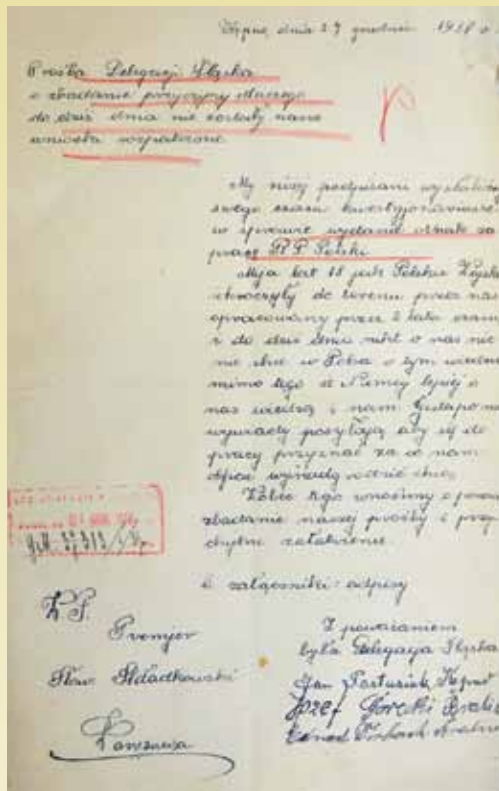 Kępno, dnia 27 grudnia 1938 r.
Prośba Delegacji Śląska
o zbadanie przyczyny dlaczego
do dziś dnia nie zostały nasze
wnioski rozpatrzone
My niżej podpisani wysłaliśmy
swego czasu kwestjonariusze
w sprawie wydania odznak za
pracę P.P. Polski
Mija lat 18 jak Polskie Wojska
wkroczyły do terenu przez nas
opracowany przez 2 lata
i do dziś dnia nikt o nas nic
nie chce w Polsce o tym wiedzieć
mimo tego że Niemcy lepiej o
nas wiedzą i nam Gestapo
posyłają aby się do
pracy przyznać za co nam
chcą
Wobec tego wnosimy o
zbadanie naszej prośby i przy
chylne załatwienie.
6 załączniki odpisy
Z poważaniem
była Delegacya Śląska
Jan Kępno
Józef Górecki
Konrad
Premjer
Sław. Składkowski
Warszawa